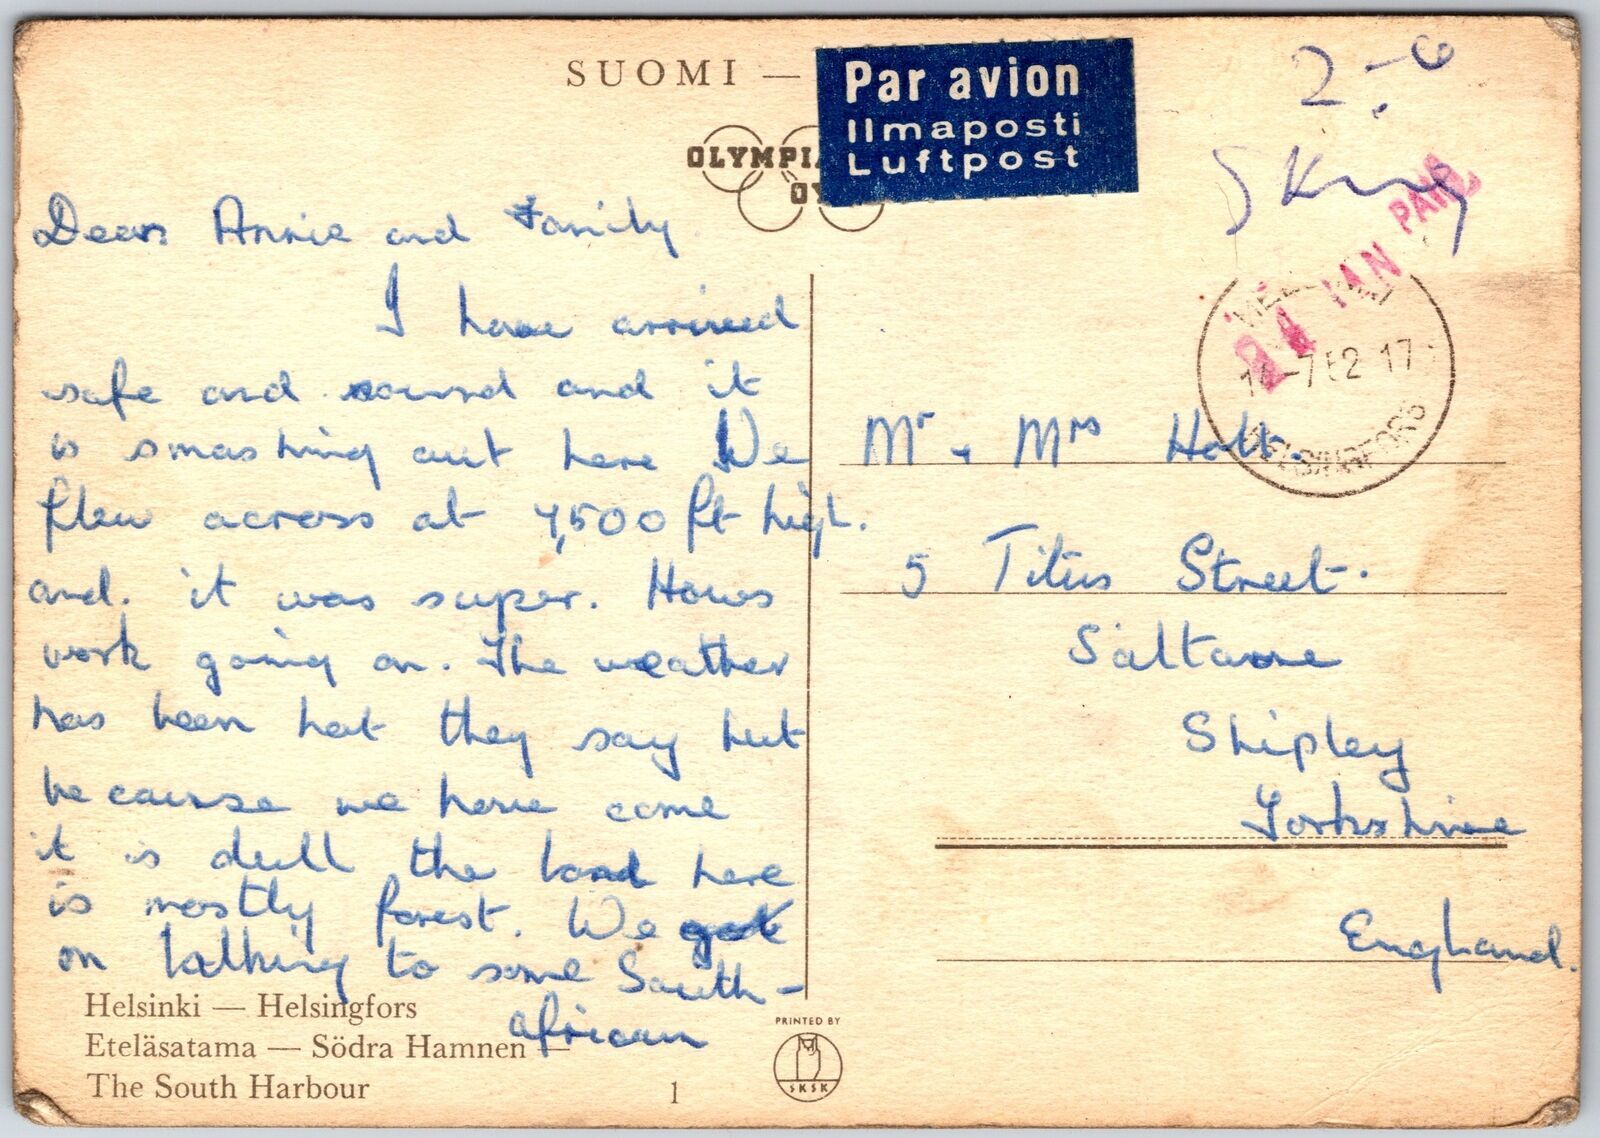 SUOMI —
Par avion
Ilmaposti
Luftpost
OLYMPIA
OY
2-6
Dear Annie and Family
I have arrived
safe and sound and it
is smashing out here We
flew across at 7,500 ft high.
and. it was super. Hows
work going on. The weather
has been hot they say but
because we have come
it is dull the land here
is mostly forest. We got
on talking to some South-
african
14-7 52 17
HELSINGFORS
Mr + Mrs Holt.
5 Titus Street.
Saltaire
Shipley
Yorkshire
England.
Helsinki — Helsingfors
Eteläsatama — Södra Hamnen —
The South Harbour
1
PRINTED BY
SKSK